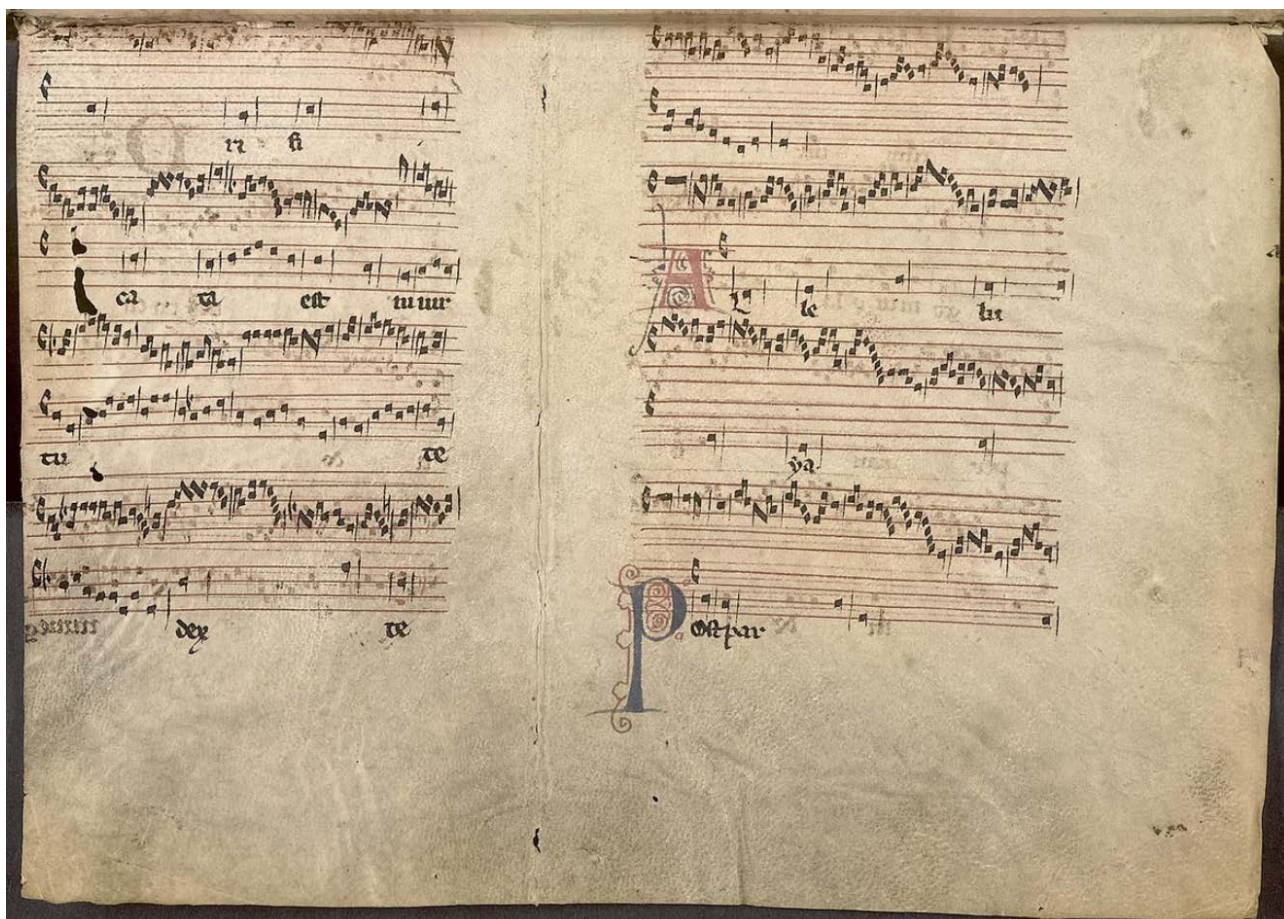 ni fi
ca ta est in uir
tu te
dex te
AL le lu
ya
Post par